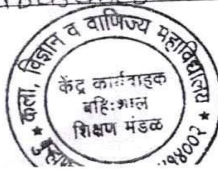 कला, विज्ञान व वाणिज्य महाविद्यालय
केंद्र कार्यवाहक
बहिःशाल
शिक्षण मंडळ